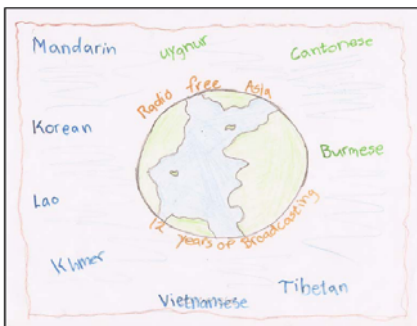 Mandarin
uygnur
Cantonese
Radio free Asia
Korean
Burmese
Lao
12 Years of Broadcasting
Khmer
Tibetan
Vietnamese